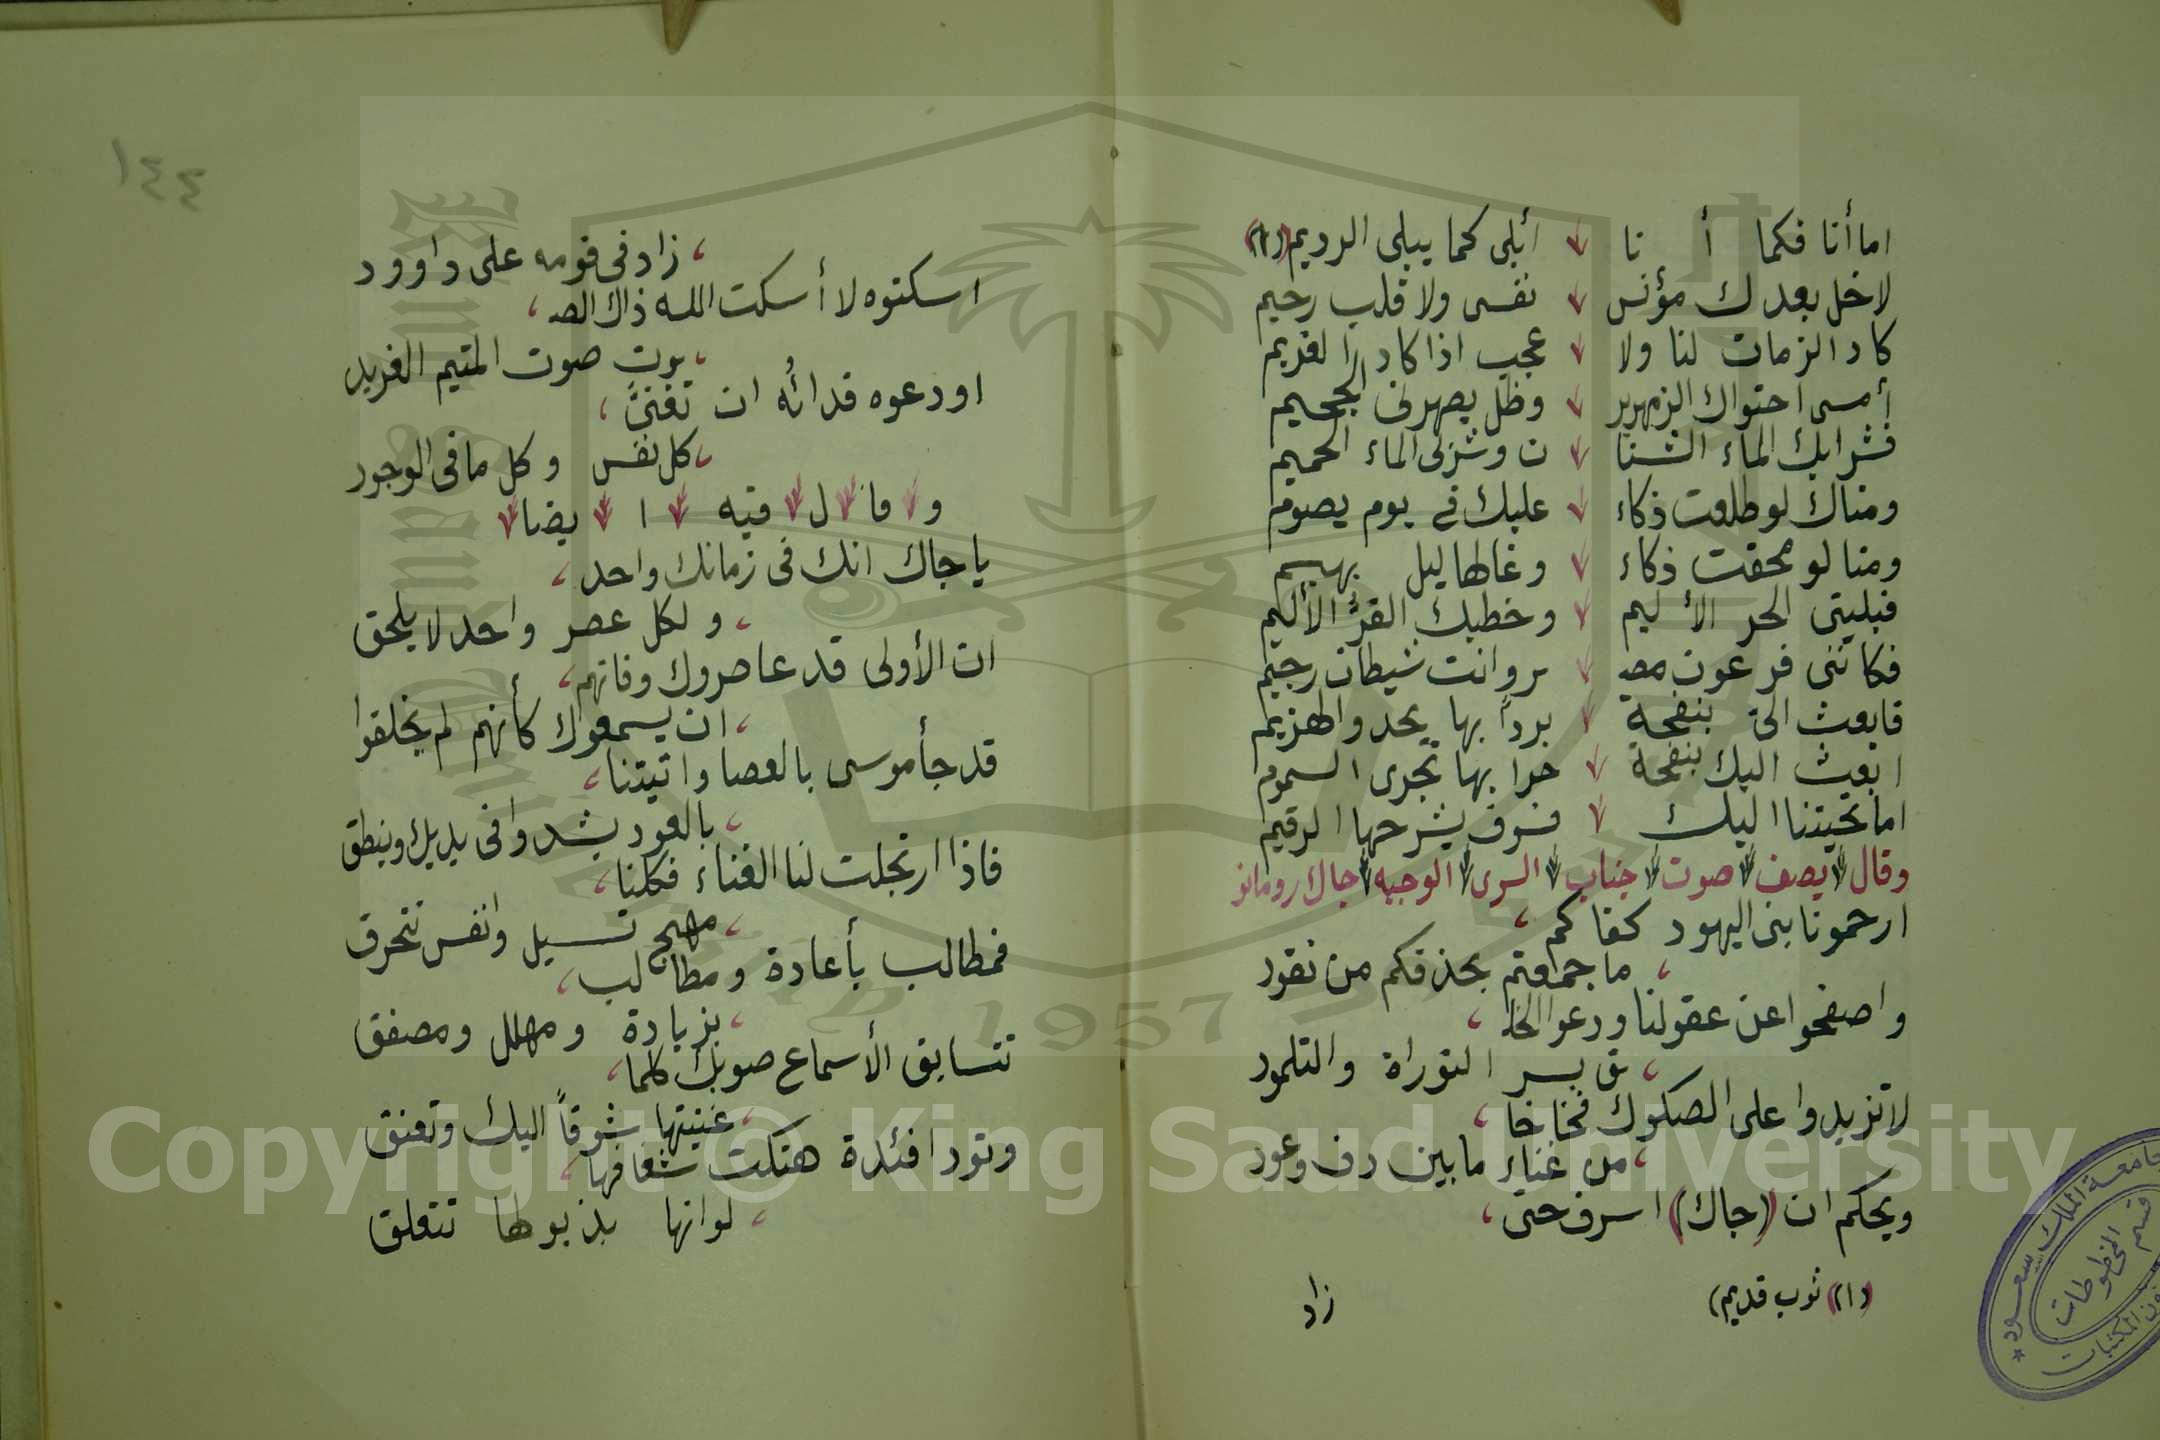 اما أنا فكما أ نا أبلى كما يبلى الرديم (١)
لا خل بعدك مؤنس نفسى ولا قلب رحيم
كاد الزمان لنا ولا عجب اذا كاد الغريم
أمسى احتواك الزمهرير وظل يصهرنى الجحيم
فشرابك الماء الشنا ن وشربى الماء الحميم
ومناك لو طلعت ذكاء عليك فى يوم يصوم
ومنا لو محقت ذكاء وغالها ليل بهيم
فبليتى الحر الأليم وخطبك القر الأليم
فكأننى فرعون مصـ ـر وانت شيطان رجيم
فابعث الىّ بنفحة برداً بها يحدو الهزيم
ابعث اليك بنفحة حرا بها تجرى السموم
اما تحيتنا اليك فسوف يشرحها الرقيم
وقال يصف صوت جناب السرى الوجيه جاك رومانو
ارحمونا بنى اليهود كفاكم
ما جمعتم بحذقكم من نقود
واصفحوا عن عقولنا ودعوا الخلـ
ـق بسر التوراة والتلمود
لا تزيدوا على الصكوك فخاخا
من غناء ما بين دف وعود
ويحكم ان (جاك) اسرف حتى
(١) ثوب قديم)
زاد
١٤٤
زاد فى قومه على داوود
اسكتوه لا أسكت الله ذاك الصـ
ـوت صوت المتيم الغريد
او دعوه فداؤه ان تغنىّ
كل نفس وكل ما فى الوجود
و قا ل فيه ا يضا
يا جاك انك فى زمانك واحد
ولكل عصر واحد لا يلحق
ان الأولى قد عاصروك وفاتهم
ان يسمعوك كأنهم لم يخلقوا
قد جأ موسى بالعصا واتيتنا
بالعود يشدو فى يديك وينطق
فاذا ارتجلت لنا الغناء فكلنا
مهج تسيل وانفس تتحرق
فمطالب بأعادة ومطالب
بزيادة ومهلل ومصفق
تتسابق الأسماع صوبك كلما
غنيتها شوقاً اليك وتعنق
وتود افئدة هتكت شغافها
لو انها بذيولها تتعلق
جامعة الملك سعود
قسم المخطوطات
Copyright © King Saud University
1957